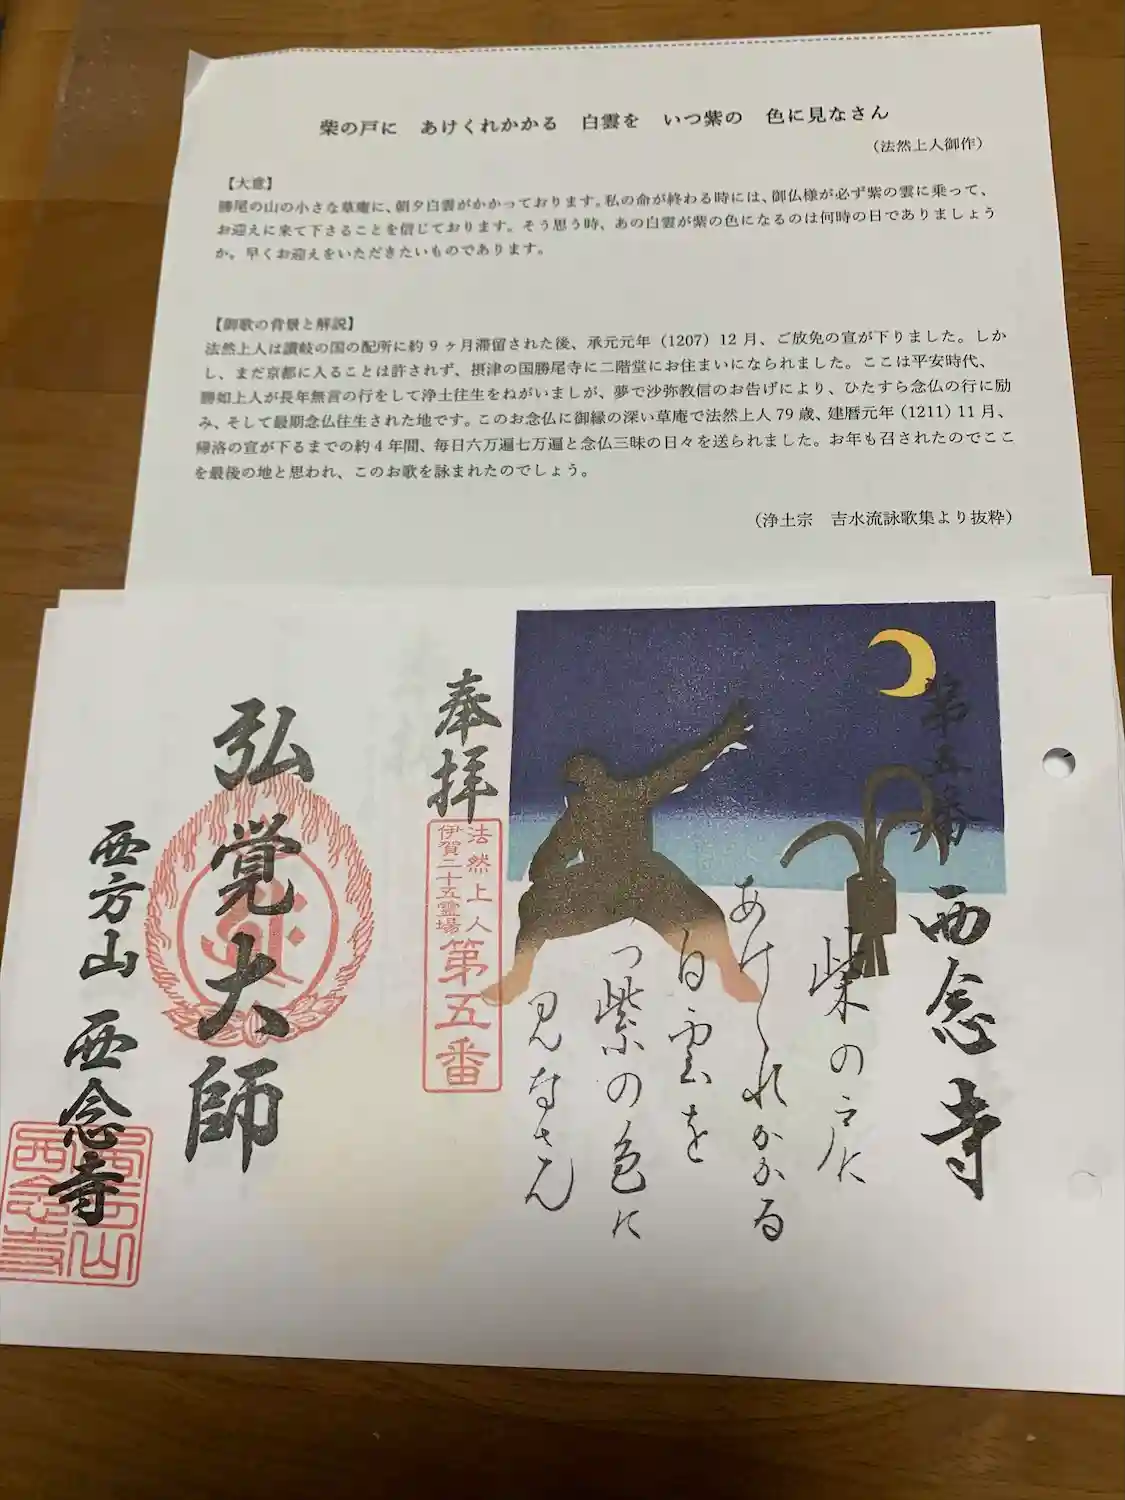 柴の戸に　あけくれかかる　白雲を　いつ紫の　色に見なさん
（法然上人御作）
【大意】
勝尾の山の小さな草庵に、朝夕白雲がかかっております。私の命が終わる時には、御仏様が必ず紫の雲に乗って、
お迎えに来て下さることを信じております。そう思う時、あの白雲が紫の色になるのは何時の日でありましょう
か。早くお迎えをいただきたいものであります。
【御歌の背景と解説】
法然上人は讃岐の国の配所に約9ヶ月滞留された後、承元元年（1207）12月、ご放免の宣が下りました。しか
し、まだ京都に入ることは許されず、摂津の国勝尾寺に二階堂にお住まいになられました。ここは平安時代、
勝如上人が長年無言の行をして浄土往生をねがいましが、夢で沙弥教信のお告げにより、ひたすら念仏の行に励
み、そして最期念仏往生された地です。このお念仏に御縁の深い草庵で法然上人79歳、建暦元年（1211）11月、
帰洛の宣が下るまでの約4年間、毎日六万遍七万遍と念仏三昧の日々を送られました。お年も召されたのでここ
を最後の地と思われ、このお歌を詠まれたのでしょう。
（浄土宗　吉水流詠歌集より抜粋）
第五番　西念寺
柴の戸に
あけくれかかる
白雲を
いつ紫の色に
見なさん
奉拝
法然上人
伊賀二十五霊場
第五番
弘覚大師
西方山　西念寺
西方山
西念寺